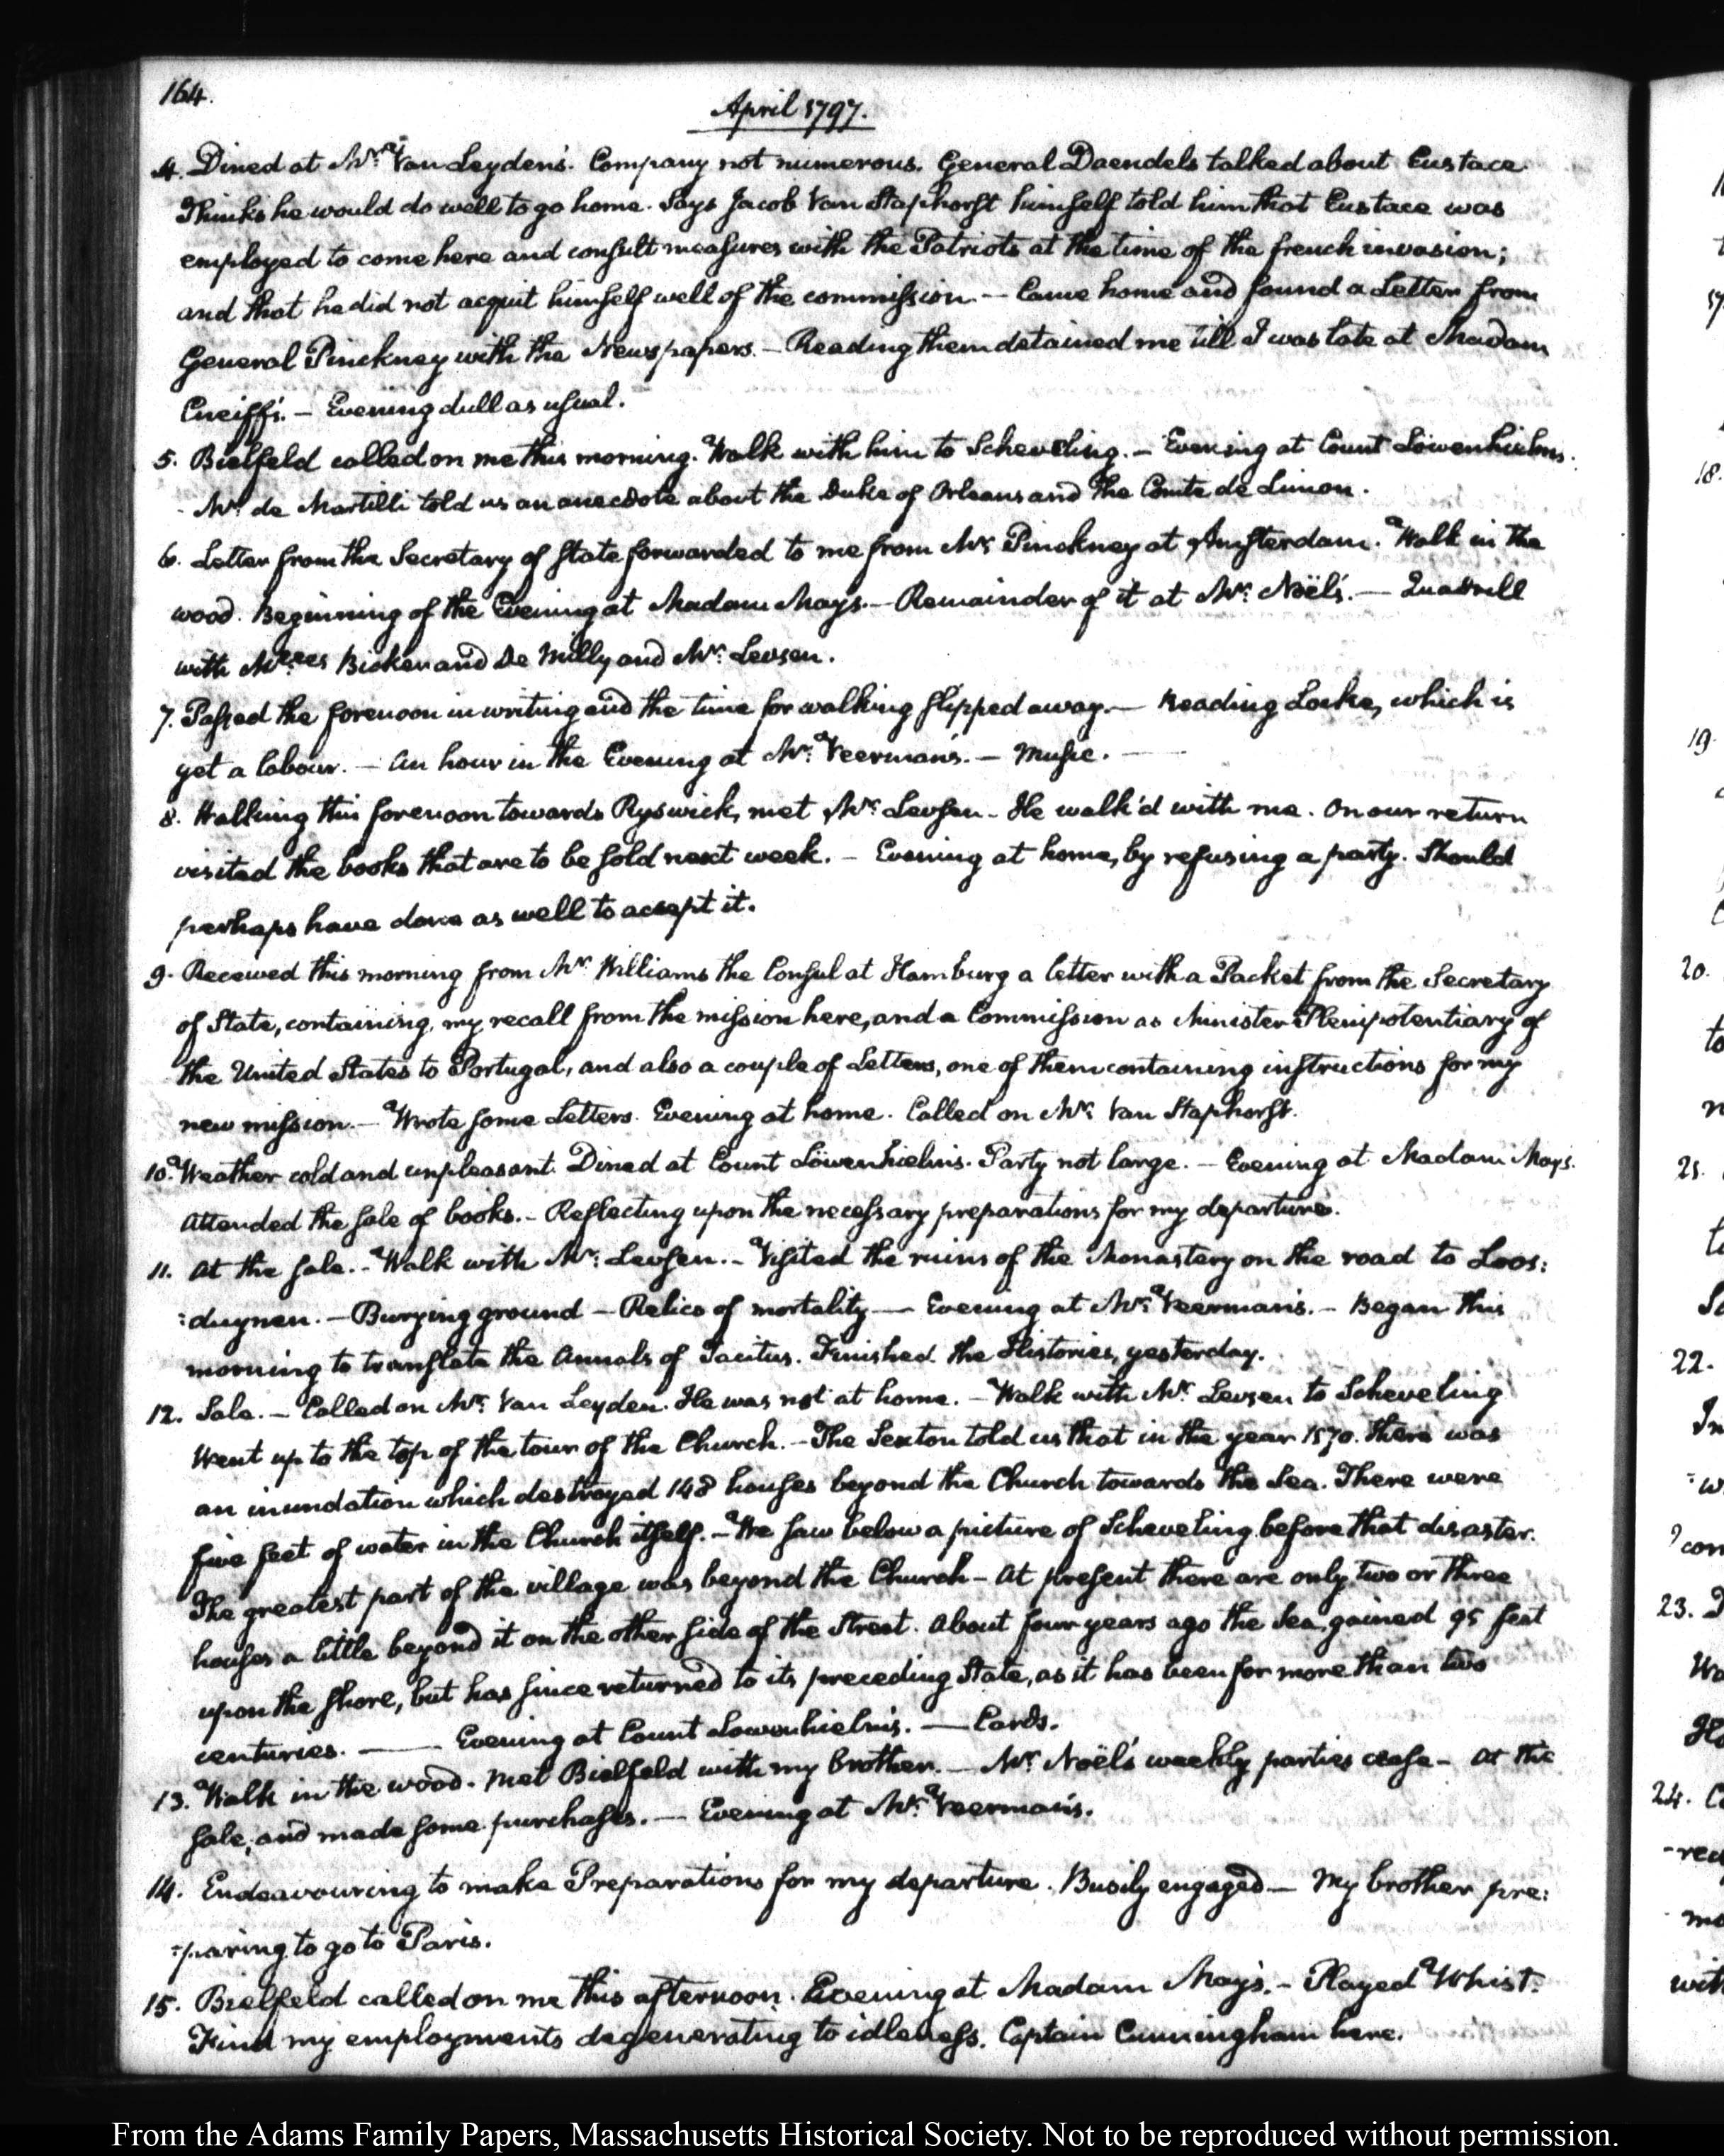 164.
April 1797.
4. Dined at Mr. Van Leyden's. Company not numerous. General Daendels talked about Eustace.
Thinks he would do well to go home. Says Jacob Van Staphorst himself told him that Eustace was
employed to come here and consult measures with the Patriots at the time of the french invasion;
and that he did not acquit himself well of the commission.— Came home and found a Letter from
General Pinckney with the Newspapers.— Reading them detained me till I was late at Madam
Cneiff's.— Evening dull as usual.
5. Bielfeld called on me this morning. Walk with him to Scheveling.— Evening at Count Löwenhielms.
Mr. de Martilli told us an anecdote about the Duke of Orleans and the Comte de Limon.
6. Letter from the Secretary of State forwarded to me from Mr. Pinckney at Amsterdam. Walk in the
wood. Beginning of the Evening at Madam Mays.— Remainder of it at Mr. Noël's.— Quadrill
with Mmes Bicker and De Milly and Mr. Levsen.
7. Passed the forenoon in writing and the time for walking slipped away.— Reading Locke, which is
yet a labour.— An hour in the Evening at Mr. Veerman's.— Music.—
8. Walking this forenoon towards Ryswick, met Mr. Levsen.— He walk'd with me. On our return
visited the books that are to be sold next week.— Evening at home, by refusing a party. Should
perhaps have done as well to accept it.
9. Received this morning from Mr. Williams the Consul at Hamburg a letter with a Packet from the Secretary
of State, containing, my recall from the mission here, and a Commission as Minister Plenipotentiary of
the United States to Portugal, and also a couple of Letters, one of them containing instructions for my
new mission.— Wrote some Letters. Evening at home. Called on Mr. Van Staphorst.
10. Weather cold and unpleasant. Dined at Count Löwenhielms. Party not large.— Evening at Madam Mays.
Attended the sale of books.— Reflecting upon the necessary preparations for my departure.
11. At the sale.— Walk with Mr. Levsen.— Visited the ruins of the Monastery on the road to Loos:
:duynen.— Burying ground — Relics of mortality — Evening at Mr. Veerman's.— Began this
morning to translate the Annals of Tacitus. Finished the Histories, yesterday.
12. Sale.— Called on Mr. Van Leyden. He was not at home.— Walk with Mr. Levsen to Scheveling
Went up to the top of the tour of the Church.— The Sexton told us that in the year 1570. there was
an inundation which destroyed 148 houses beyond the Church towards the Sea. There were
five feet of water in the Church itself.— We saw below a picture of Scheveling before that disaster.
The greatest part of the village was beyond the Church — At present there are only two or three
houses a little beyond it on the other side of the Street. About four years ago the Sea gained 95 feet
upon the shore, but has since returned to its preceding State, as it has been for more than two
centuries. —— Evening at Count Lowenhielm's. — Cards.
13. Walk in the wood. Met Bielfeld with my brother.— Mr. Noël's weekly parties cease — At the
sale, and made some purchases.— Evening at Mr. Veerman's.
14. Endeavouring to make Preparations for my departure. Busily engaged — My brother pre:
:paring to go to Paris.
15. Bielfeld called on me this afternoon. Evening at Madam May's.— Played Whist.
Find my employments degenerating to idleness. Captain Cunningham here.
From the Adams Family Papers, Massachusetts Historical Society. Not to be reproduced without permission.